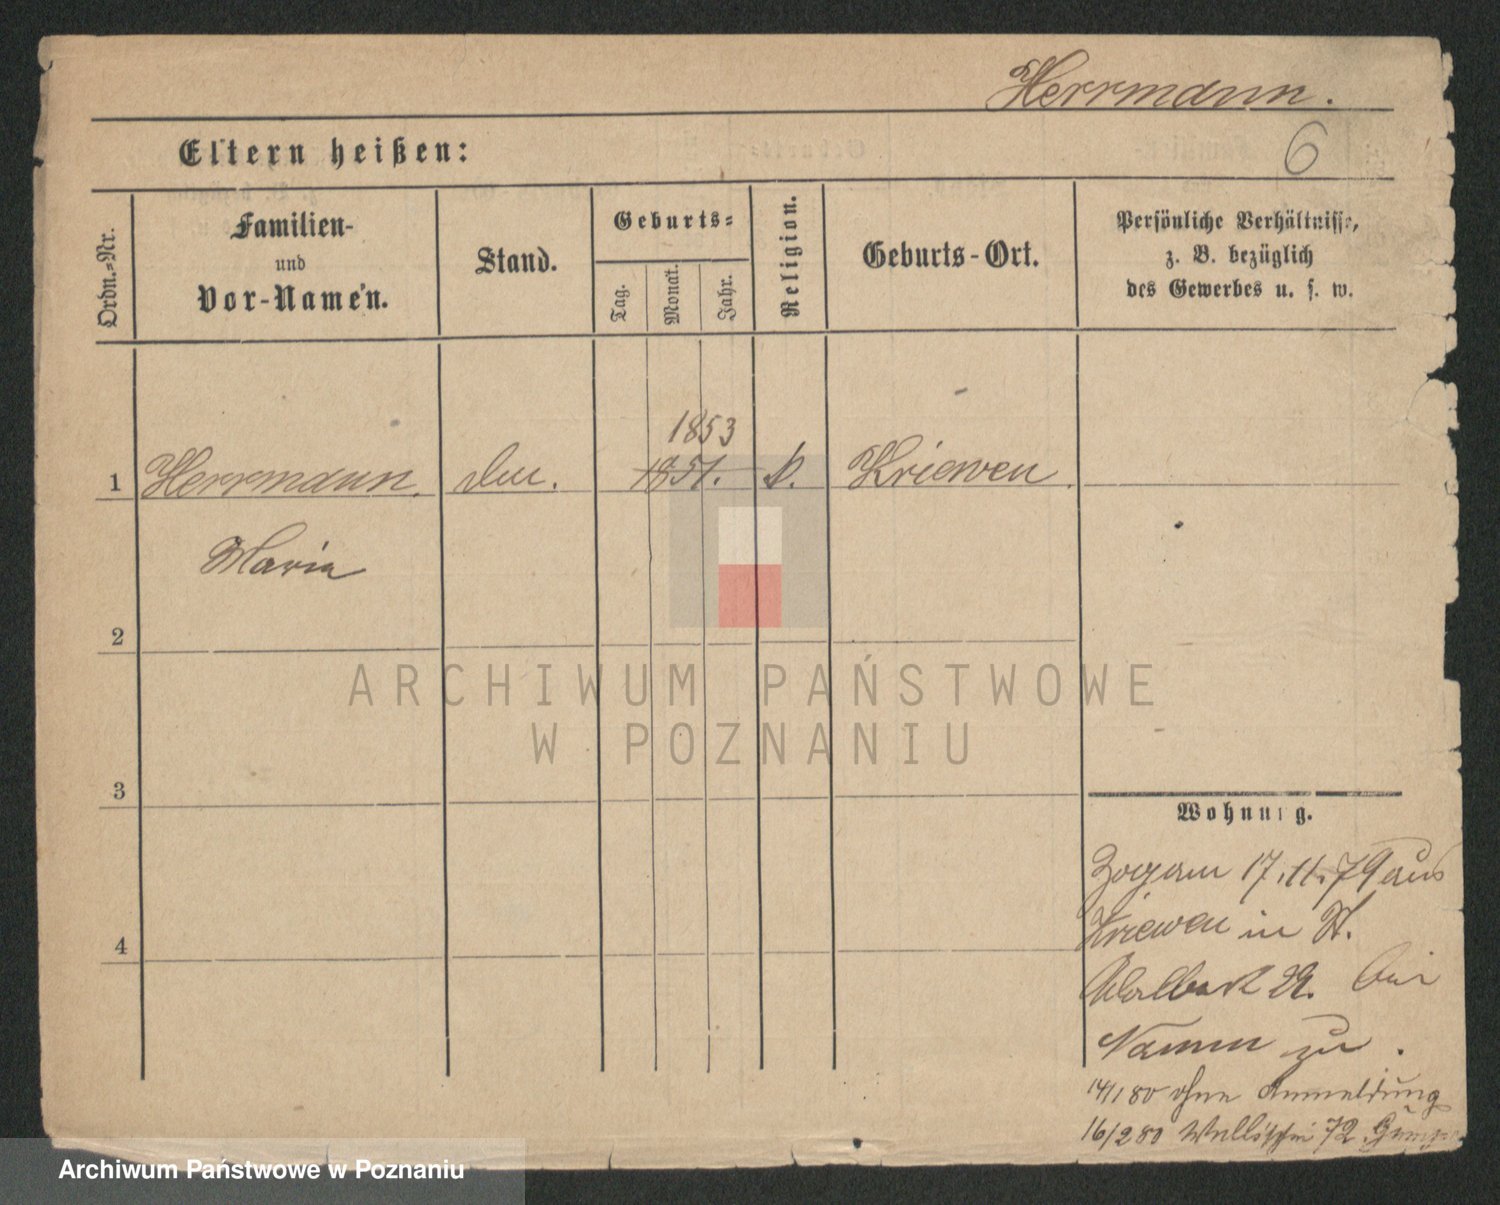 Herrmann.
6
Eltern heißen:
Ordn.-Nr.
Familien-
und
Vor-Namen.
Stand.
Geburts-
Tag.
Monat.
Jahr.
Religion.
Geburts-Ort.
Persönliche Verhältnisse,
z. B. bezüglich
des Gewerbes u. s. w.
1853
1 Herrmann. 1851. k. Kriewen
Maria
2
ARCHIWUM PAŃSTWOWE
W POZNANIU
3
Wohnung.
Zog am 17.11.79 aus
4
Kriewen in St.
Adalbert 22. bei
Namm zu.
14/1 80 ohne Anmeldung
16/2 80 Wallischei 72
Archiwum Państwowe w Poznaniu